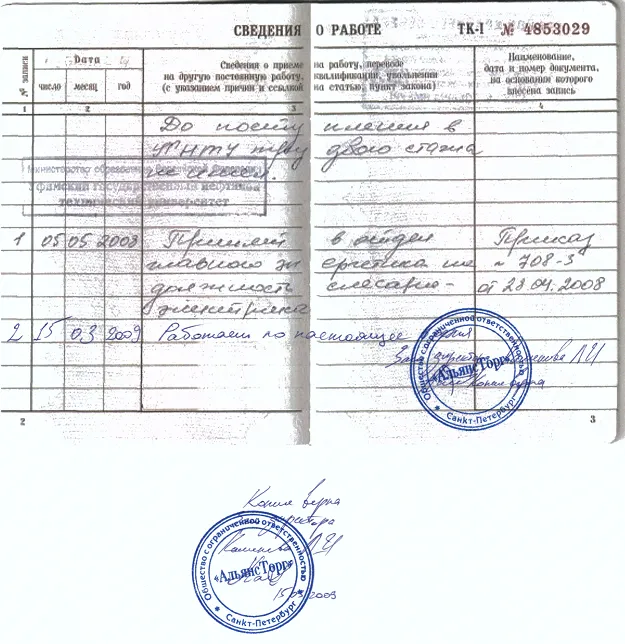 СВЕДЕНИЯ О РАБОТЕ ТК-I № 4853029
№ записи
Дата
число месяц год
Сведения о приеме на работу, переводе
на другую постоянную работу, квалификации, увольнении
(с указанием причин и ссылкой на статью, пункт закона)
Наименование,
дата и номер документа,
на основании которого
внесена запись
1 2 3 4
До поступления в
УГНТУ трудового стажа
не имеет.
Уфимский государственный нефтяной
технический университет
1 05 05 2008 Принят в отдел Приказ
главного энергетика на № 708-З
должность слесаря- от 28.04.2008
электрика
2 15 03 2009 Работает по настоящее время
директора Каменкова Л И
Копия верна
Общество с ограниченной ответственностью
«АльянсТорг»
Санкт-Петербург
2 3
Копия верна
директора
Л И
Общество с ограниченной ответственностью
«АльянсТорг»
Санкт-Петербург